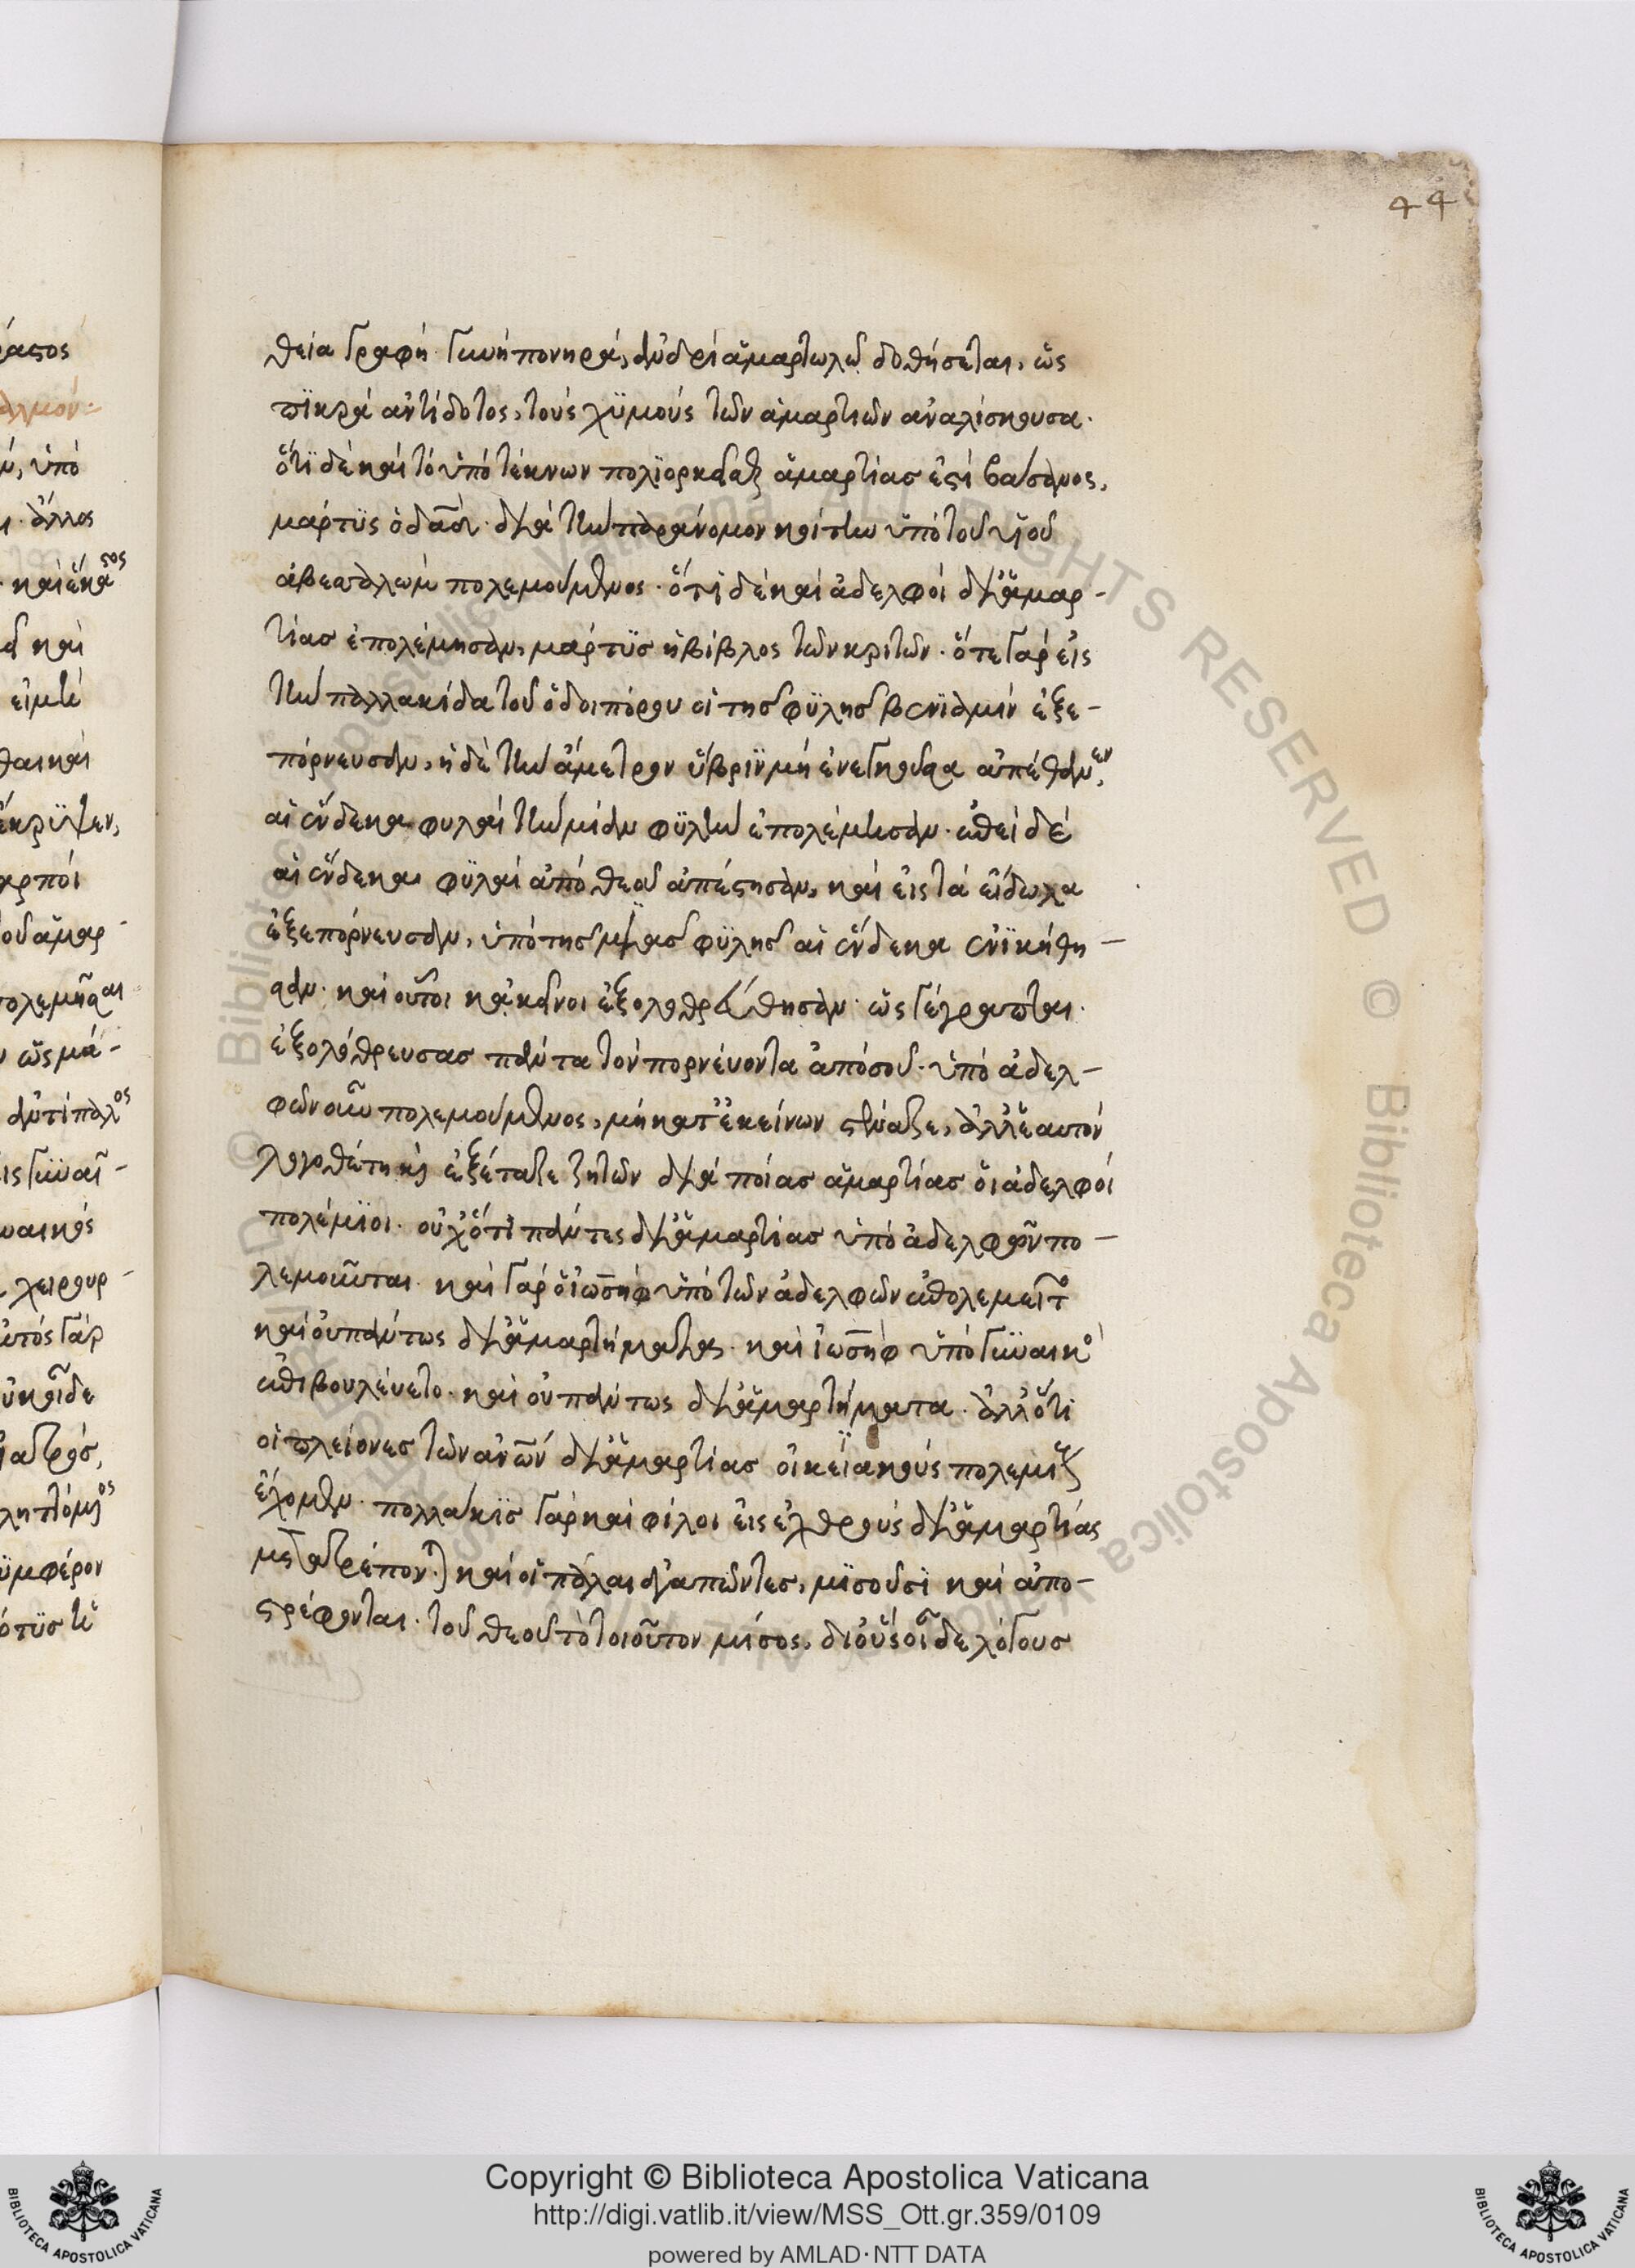 44
θεία γραφή· γυνὴ πονηρά, ἀνδρὶ ἁμαρτωλῷ δοθήσεται, ὡς
πικρὰ ἀντίδοτος, τοὺς χυμοὺς τῶν ἁμαρτιῶν ἀναλίσκουσα·
ὅτι δὲ καὶ τὸ ὑπὸ τέκνων πολιορκεῖσθαι ἁμαρτίας ἐστὶ βάσανος,
μάρτυς ὁ δαδ· διὰ τὴν παράνομον κοίτην ὑπὸ τοῦ υἱοῦ
ἀβεσαλὼμ πολεμούμενος· ὅτι δὲ καὶ ἀδελφοὶ δι' ἁμαρ-
τίας ἐπολέμησαν, μάρτυς ἡ βίβλος τῶν κριτῶν· ὅτε γὰρ εἰς
τὴν παλλακίδα τοῦ ὁδοιπόρου οἱ τῆς φυλῆς βενιαμὶν ἐξε-
πόρνευσαν, ἡ δὲ τὴν ἄμετρον ὕβριν μὴ ἐνεγκοῦσα ἀπέθανεν,
αἱ ἕνδεκα φυλαὶ τὴν μίαν φυλὴν ἐπολέμησαν· ἐπεὶ δὲ
αἱ ἕνδεκα φυλαὶ ἀπὸ θεοῦ ἀπέστησαν, καὶ εἰς τὰ εἴδωλα
ἐξεπόρνευσαν, ὑπὸ τῆς μιᾶς φυλῆς αἱ ἕνδεκα ἐνικήθη-
σαν· καὶ οὗτοι κἀκεῖνοι ἐξολοθρεύθησαν· ὡς γέγραπται·
ἐξολόθρευσας πάντα τὸν πορνεύοντα ἀπὸ σοῦ· ὑπὸ ἀδελ-
φῶν οὖν πολεμούμενος, μὴ κατ' ἐκείνων στέναζε, ἀλλ' ἑαυτὸν
λογοθέτει καὶ ἐξέταζε ζητῶν διὰ ποίας ἁμαρτίας οἱ ἀδελφοὶ
πολέμιοι· οὐχ ὅτι πάντες δι' ἁμαρτίας ὑπὸ ἀδελφῶν πο-
λεμοῦνται· καὶ γὰρ ὁ ἰωσὴφ ὑπὸ τῶν ἀδελφῶν ἐπολεμεῖτο
καὶ οὐ πάντως δι' ἁμαρτήματα· καὶ ἰωσὴφ ὑπὸ γυναικὸς
ἐπεβουλεύετο· καὶ οὐ πάντως δι' ἁμαρτήματα· ἀλλ' ὅτι
οἱ πλείονες τῶν ἀνῶν δι' ἁμαρτίας οἰκειακοὺς πολεμίους
ἔχομεν· πολλάκις γὰρ καὶ φίλοι εἰς ἐχθροὺς δι' ἁμαρτίας
μετατρέπονται καὶ οἱ πάλαι ἀγαπῶντες, μισοῦσι καὶ ἀπο-
στρέφονται· τοῦ θεοῦ τὸ τοιοῦτον μῖσος, δι' οὓς οἶδε λόγους
Copyright © Biblioteca Apostolica Vaticana
http://digi.vatlib.it/view/MSS_Ott.gr.359/0109
powered by AMLAD·NTT DATA